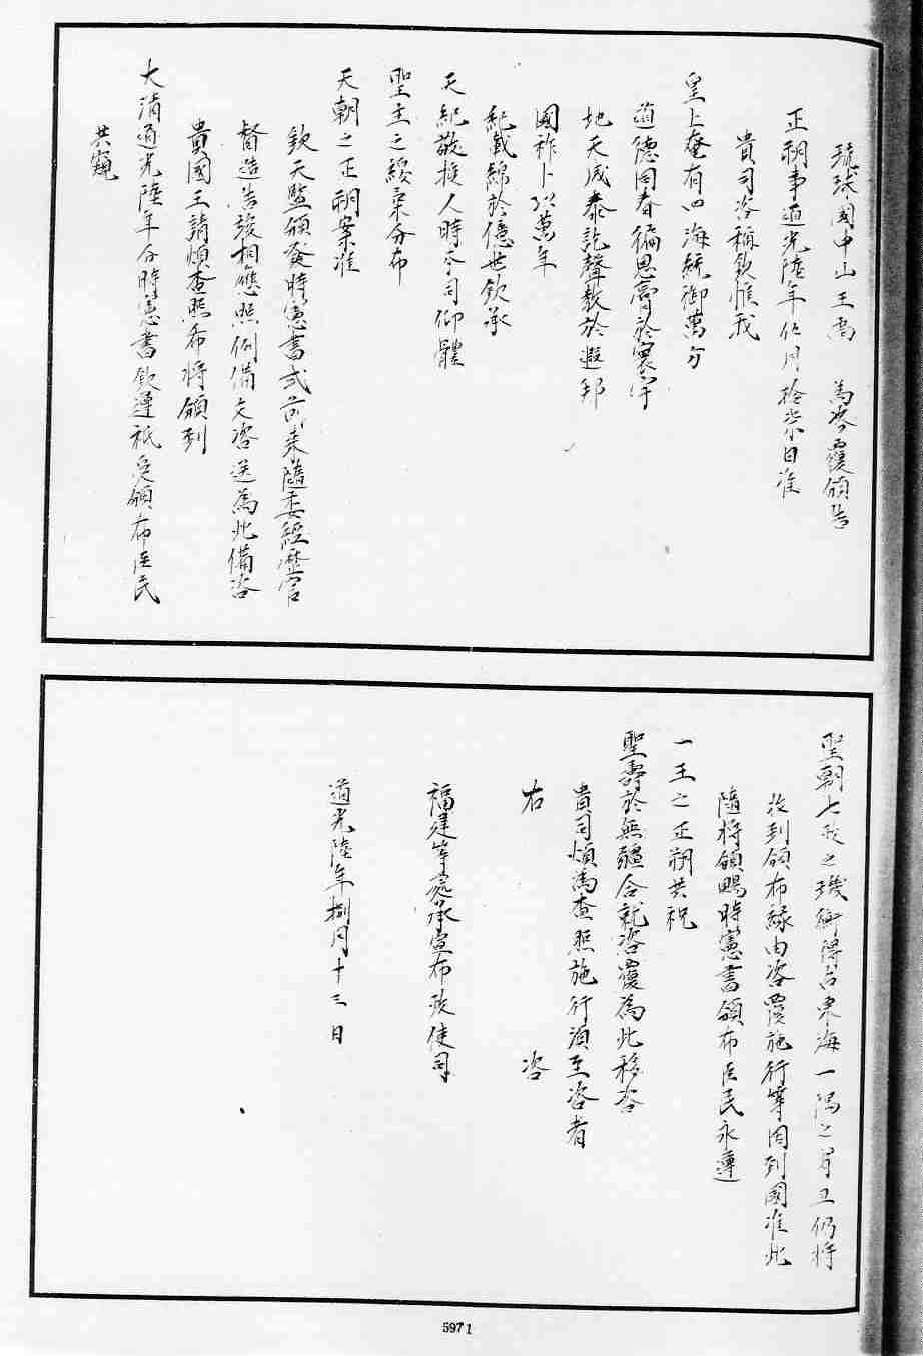 琉球國中山王尚 為咨覆頒告
正朔事道光陸年 月拾柒日准
貴司咨稱欽惟我
皇上奄有四海統御萬方
道德同春徧恩膏於寰宇
地天咸泰訖聲教於遐邦
國祚卜以萬年
紀載綿於億世欽承
天紀敬授人時本司仰體
聖主之綏來分布
天朝之正朔案准
欽天監頒發時憲書式前來隨委經歷官
督造告竣相應照例備文咨送為此備咨
貴國王請煩查照希將頒到
大清道光陸年分時憲書欽遵祇受頒布臣民
共窺
聖朝七政之璣衡得占東海一隅之 仍將
收到頒布緣由咨覆施行等因到國准此
隨將頒賜時憲書頒布臣民永遵
一王之正朔共祝
聖壽於無疆合就咨覆為此移咨
貴司煩為查照施行須至咨者
右 咨
福建等處承宣布政使司
道光陸年捌月十三日
5971